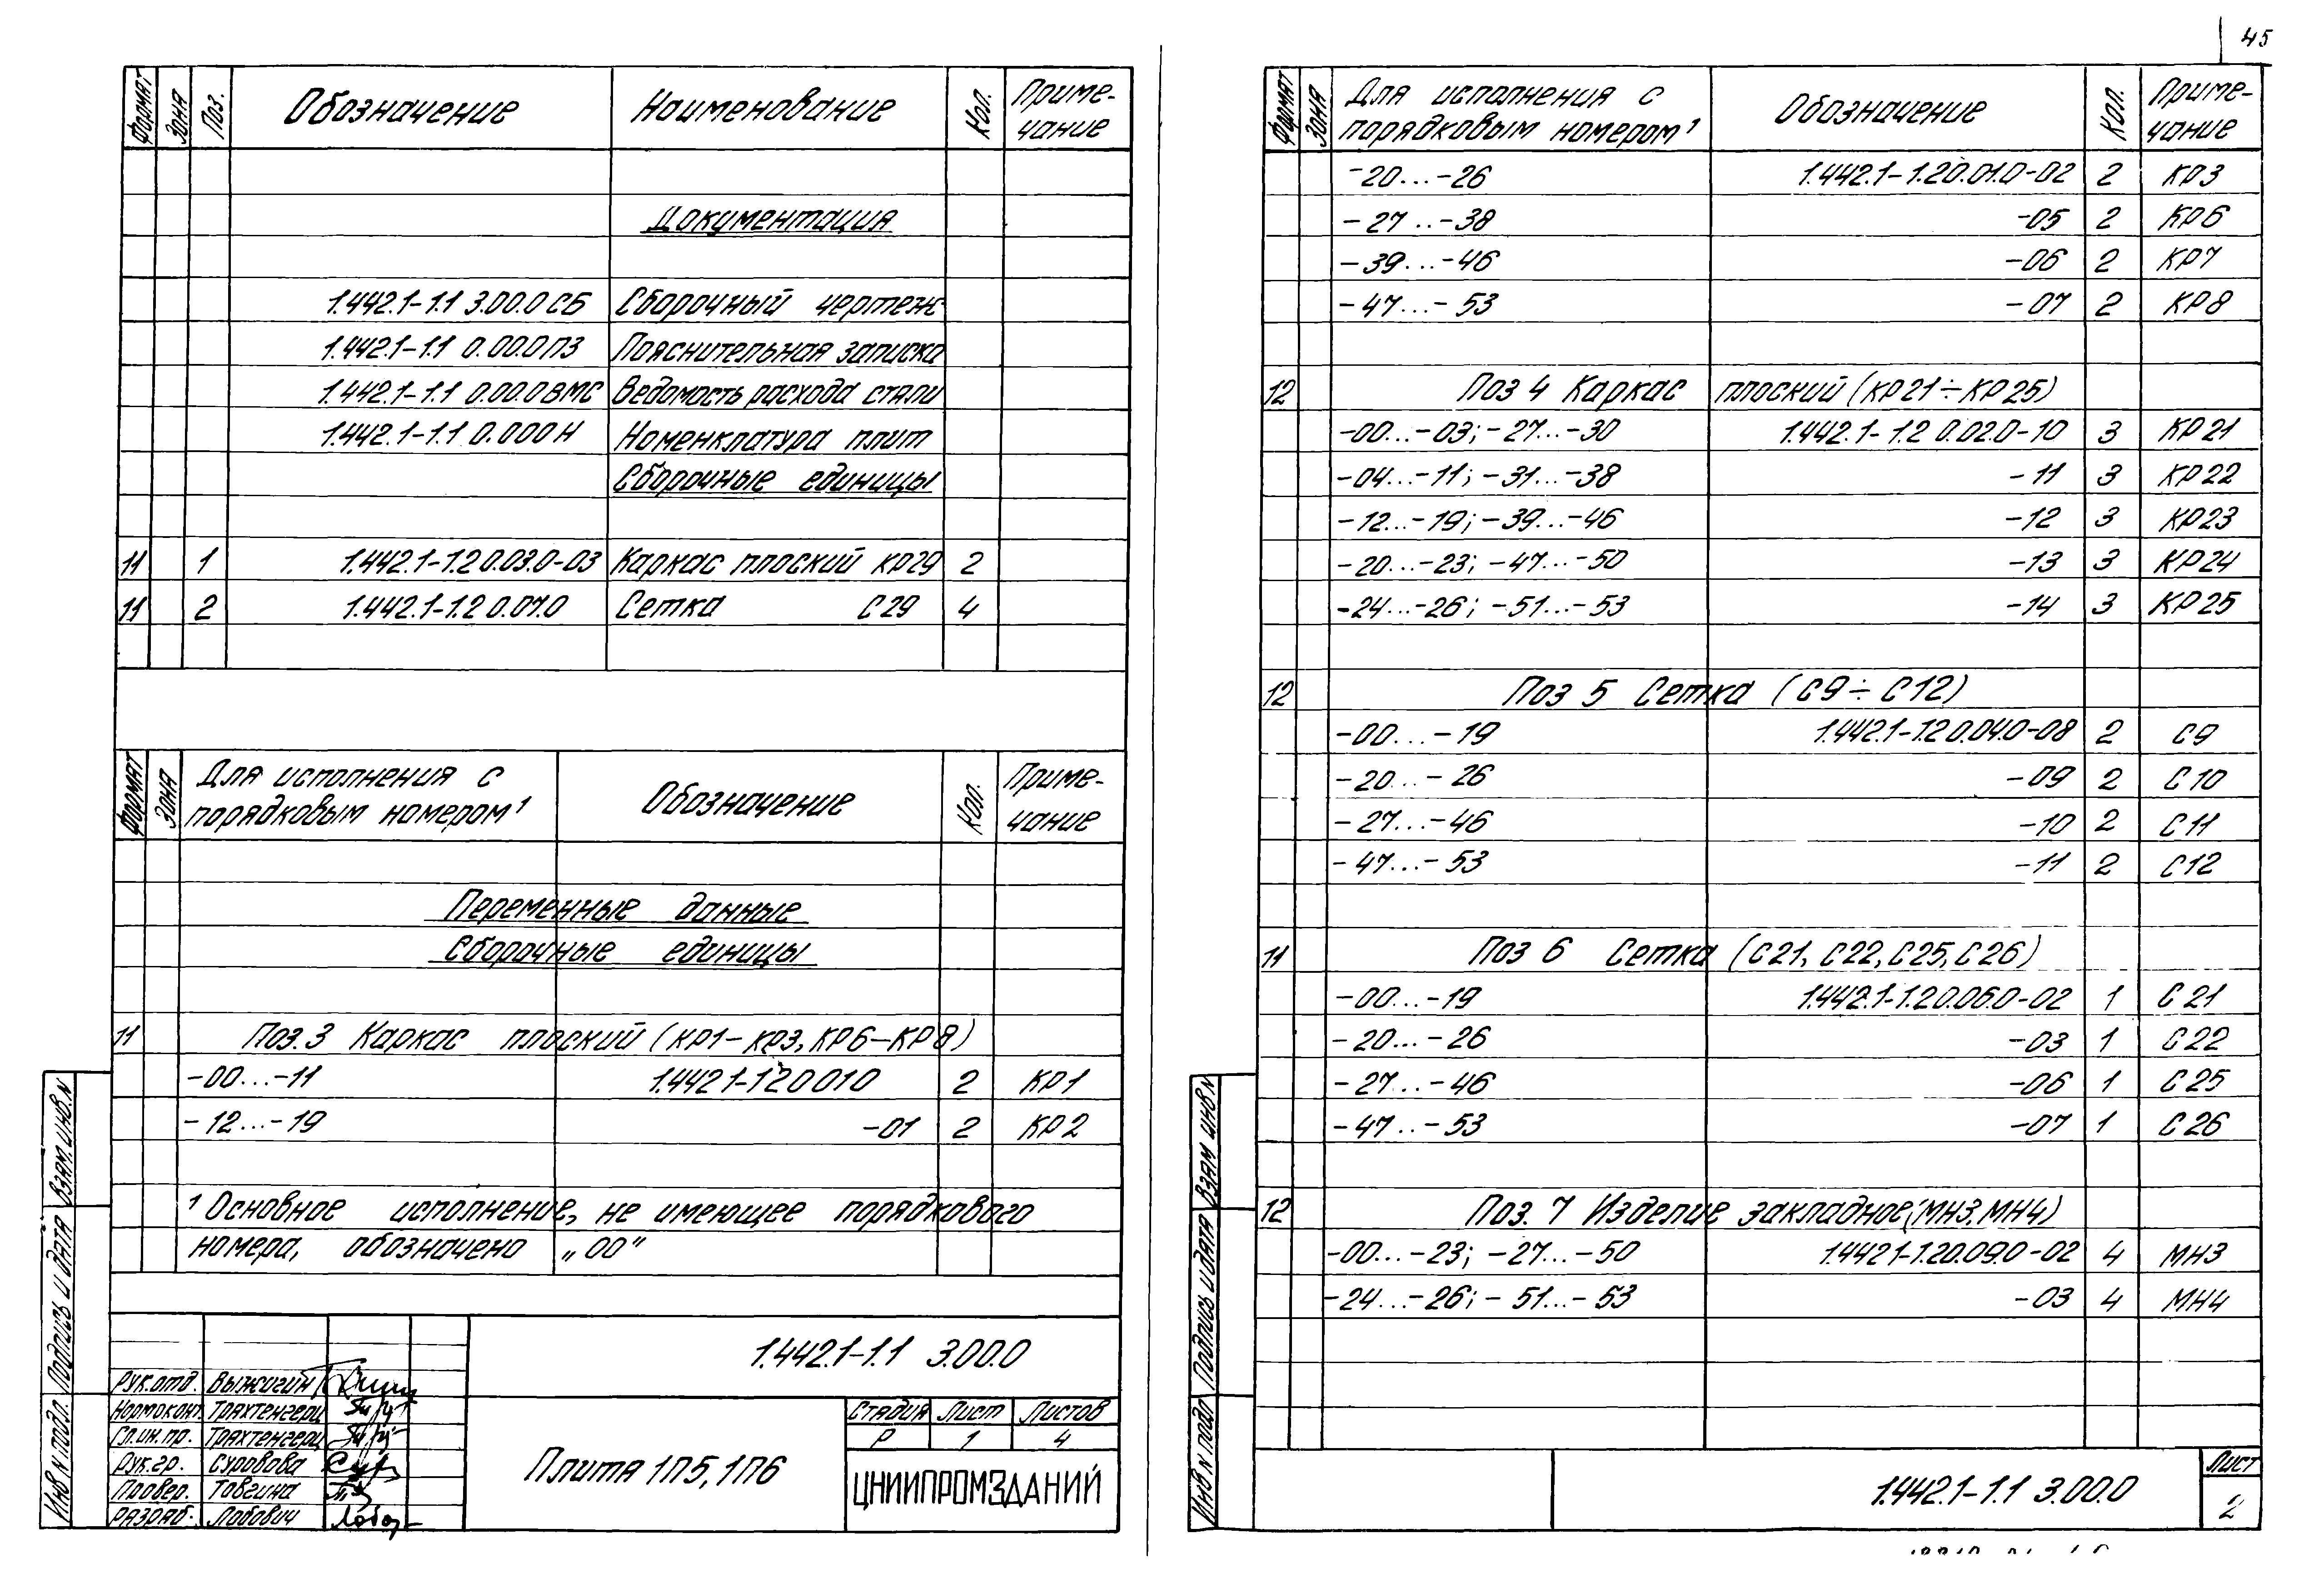 45
Формат Зона Поз. Обозначение Наименование Кол. Приме-
чание
Документация
1.442.1-1.1 3.00.0СБ Сборочный чертеж
1.442.1-1.1 0.00.0ПЗ Пояснительная записка
1.442.1-1.1 0.00.0ВМС Ведомость расхода стали
1.442.1-1.1 0.000Н Номенклатура плит
Сборочные единицы
11 1 1.442.1-1.2 0.03.0-03 Каркас плоский КР29 2
11 2 1.442.1-1.2 0.07.0 Сетка С29 4
Формат Зона Для исполнения с
порядковым номером¹ Обозначение Кол. Приме-
чание
Переменные данные
Сборочные единицы
11 Поз.3 Каркас плоский (КР1-КР3, КР6-КР8)
-00...-11 1.4421-120010 2 КР1
-12...-19 -01 2 КР2
¹ Основное исполнение, не имеющее порядкового
номера, обозначено „00"
Инв N подл. Подпись и дата Взам. инв. N
1.442.1-1.1 3.00.0
Рук.отд. Выжигин
Нормоконт. Трахтенгерц
Гл.ин.пр. Трахтенгерц
Рук.гр. Суровова
Провер. Товгина
Разраб. Лобович
Плита 1П5, 1П6
Стадия Лист Листов
Р 1 4
ЦНИИПРОМЗДАНИЙ
Формат Зона Для исполнения с
порядковым номером¹ Обозначение Кол. Приме-
чание
-20...-26 1.442.1-1.20.01.0-02 2 КР3
-27...-38 -05 2 КР6
-39...-46 -06 2 КР7
-47...-53 -07 2 КР8
12 Поз 4 Каркас плоский (КР21÷КР25)
-00...-03; -27...-30 1.442.1-1.2 0.02.0-10 3 КР21
-04...-11; -31...-38 -11 3 КР22
-12...-19; -39...-46 -12 3 КР23
-20...-23; -47...-50 -13 3 КР24
-24...-26; -51...-53 -14 3 КР25
12 Поз 5 Сетка (С9÷С12)
-00...-19 1.442.1-1.20.04.0-08 2 С9
-20...-26 -09 2 С10
-27...-46 -10 2 С11
-47...-53 -11 2 С12
11 Поз 6 Сетка (С21, С22, С25, С26)
-00...-19 1.442.1-1.20.06.0-02 1 С21
-20...-26 -03 1 С22
-27...-46 -06 1 С25
-47...-53 -07 1 С26
12 Поз. 7 Изделие закладное (МН3, МН4)
-00...-23; -27...-50 1.4421-1.20.09.0-02 4 МН3
-24...-26; -51...-53 -03 4 МН4
Инв N подл Подпись и дата Взам инв N
1.442.1-1.1 3.00.0
Лист
2